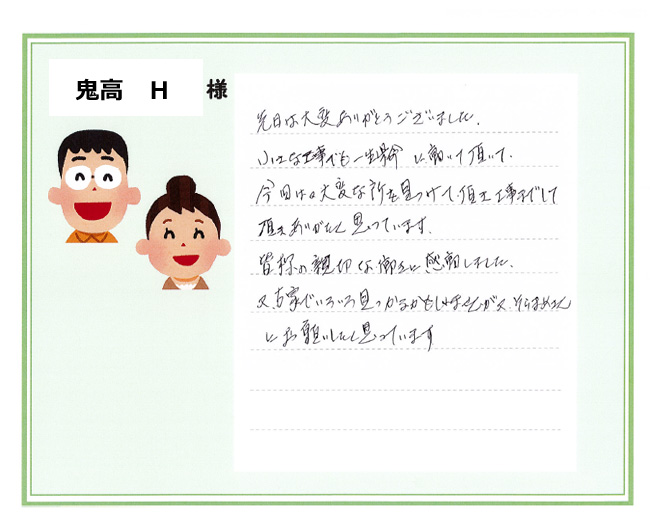 鬼高 H 様
先日は大変ありがとうございました.
小さな工事でも一生懸命に動いて頂いて.
今回は大変な所を見つけて頂き工事までして
頂きありがたく思っています.
皆様の親切な働きに感動しました.
又、古家でいろいろ見つかるかもしれませんが又、
にお願いしたく思っています